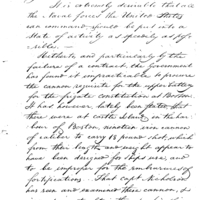 It is extremely desirable that all
the naval force the United States
can command should be put into a
State of activity as speedily as pos-
sible —
Hitherto and particularly by the
failure of a contract the Government
has found it impracticable to procure
the cannon requisite for the
for the frigate constitution at Boston.
It has however, lately been stated that
there were at castle Island in the har-
bour of Boston, nineteen iron cannon
of caliber to carry 18 pound shot, which
from their length and weight appear to
have been designed for ships use, and
to be improper for the embrasures of
fortifications. That capt. Nicholson
has seen and examined these cannon, &